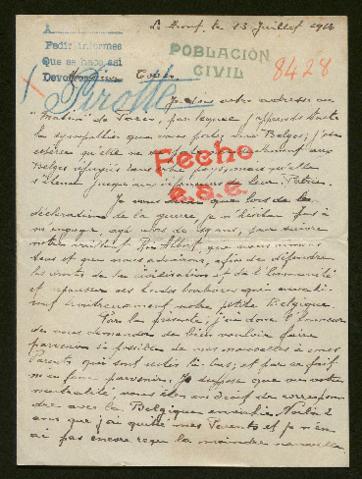 Le Front, le 13 Juillet 1916
A
Pedir informes
Que se hace así
Devo
POBLACIÓN
CIVIL
8428
Pirotte
Je dois votre adresse au
"Matin" de Paris, par lequel j'apprends toute
la sympathie que vous portez aux Belges; j'ose
espérer qu'elle ne
Fecho
Belges réfugiés dans votre pays, mais qu'elle
s'étend jusque aux défenseurs de leur Patrie.
e.s.c.
Je vous dirai que lors de la
déclaration de la guerre, je n'hésitai pas à
m'engager, âgé alors de ans, pour suivre
notre vaillant Roi Albert, que nous aimons
tous et que nous admirons, afin de défendre
les droits de la civilisation et de l'humanité
et repousser ces hordes barbares qui
notre petite Belgique.
Par la présente, j'ai donc l'honneur
de vous demander de bien vouloir faire
parvenir si possible de mes nouvelles à mes
Parents qui sont restés là-bas; et par ce fait
m'en faire parvenir. Je suppose que vu votre
neutralité, vous êtes en droit de correspon-
dre avec la Belgique envahie. Voilà 2
ans que j'ai quitté mes Parents et je n'en
ai pas encore reçu la moindre nouvelle.